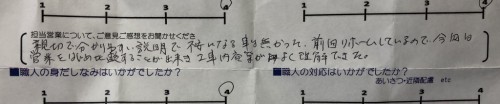 1 4 1 4
担当営業について、ご意見ご感想をお聞かせください
親切で分かりやすい説明で 事も無かった。前回リホームしているので、今回も
営業 することが出来 工事内容 良く理解できた。
■職人の身だしなみはいかがでしたか？ ■職人の対応はいかがでしたか？
あいさつ・近隣配慮 etc
4